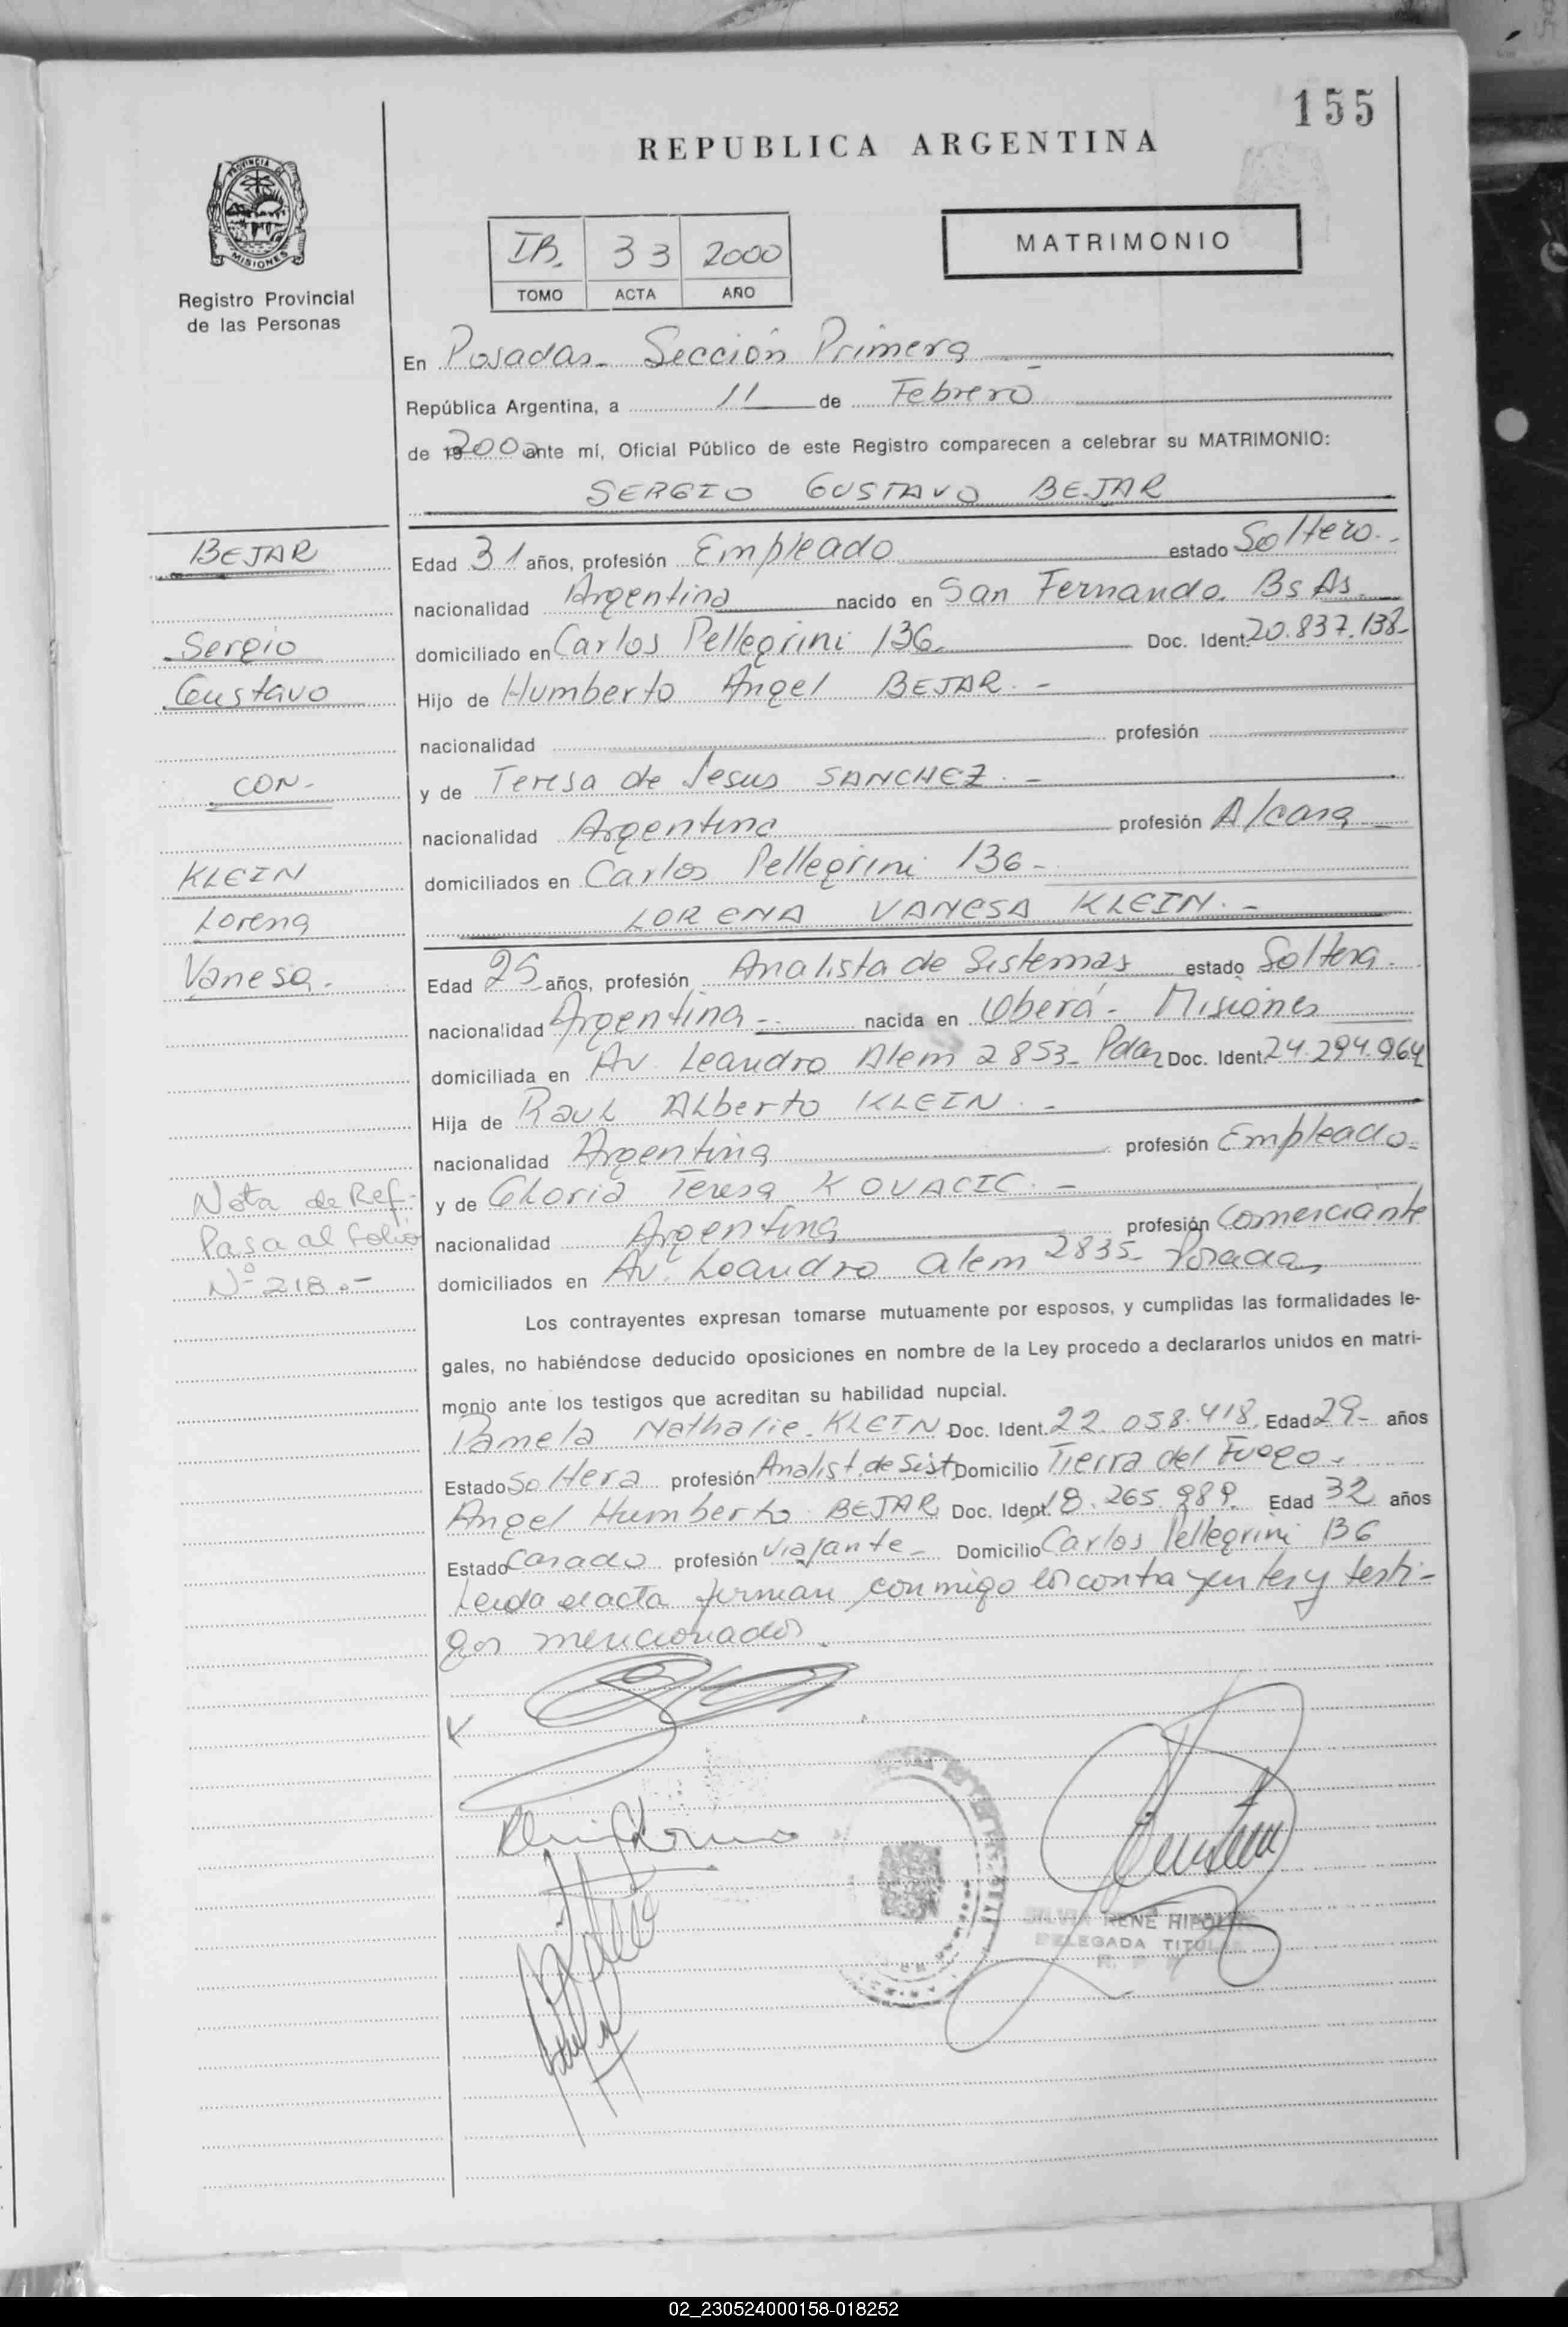 155
REPUBLICA ARGENTINA
PROVINCIA DE
MISIONES
Registro Provincial
de las Personas
IB. 33 2000
TOMO ACTA AÑO
MATRIMONIO
En Posadas - Sección Primera
República Argentina, a 11 de Febrero
de 2000 ante mí, Oficial Público de este Registro comparecen a celebrar su MATRIMONIO:
SERGIO GUSTAVO BEJAR
BEJAR
Sergio
Gustavo
CON -
KLEIN
Lorena
Vanesa.
Nota de Ref-
Pasa al folio
Nº 218.-
Edad 31 años, profesión Empleado estado Soltero.-
nacionalidad Argentina nacido en San Fernando. Bs As.
domiciliado en Carlos Pellegrini 136 Doc. Ident. 20.837.138-
Hijo de Humberto Angel BEJAR. -
nacionalidad profesión
y de Teresa de Jesus SANCHEZ. -
nacionalidad Argentina profesión A/casa
domiciliados en Carlos Pellegrini 136 -
LORENA VANESA KLEIN. -
Edad 25 años, profesión Analista de Sistemas estado Soltera.
nacionalidad Argentina - nacida en Oberá - Misiones
domiciliada en Av. Leandro Alem 2853- Pdas Doc. Ident. 24.294.964
Hija de Raul Alberto KLEIN. -
nacionalidad Argentina profesión Empleado-
y de Gloria Teresa KOVACIC. -
nacionalidad Argentina profesión Comerciante
domiciliados en Av. Leandro Alem 2835- Posadas
Los contrayentes expresan tomarse mutuamente por esposos, y cumplidas las formalidades le-
gales, no habiéndose deducido oposiciones en nombre de la Ley procedo a declararlos unidos en matri-
monio ante los testigos que acreditan su habilidad nupcial.
Pamela Nathalie KLEIN Doc. Ident. 22.058.418. Edad 29- años
Estado Soltera profesión Analist. de Sist. Domicilio Tierra del Fuego.
Angel Humberto BEJAR Doc. Ident. 18.265.989. Edad 32 años
Estado Casado profesión Viajante - Domicilio Carlos Pellegrini 136
Leida el acta firman conmigo los contrayentes y testi-
gos mencionados.
RENÉ
DELEGADA TITULAR
02_230524000158-018252